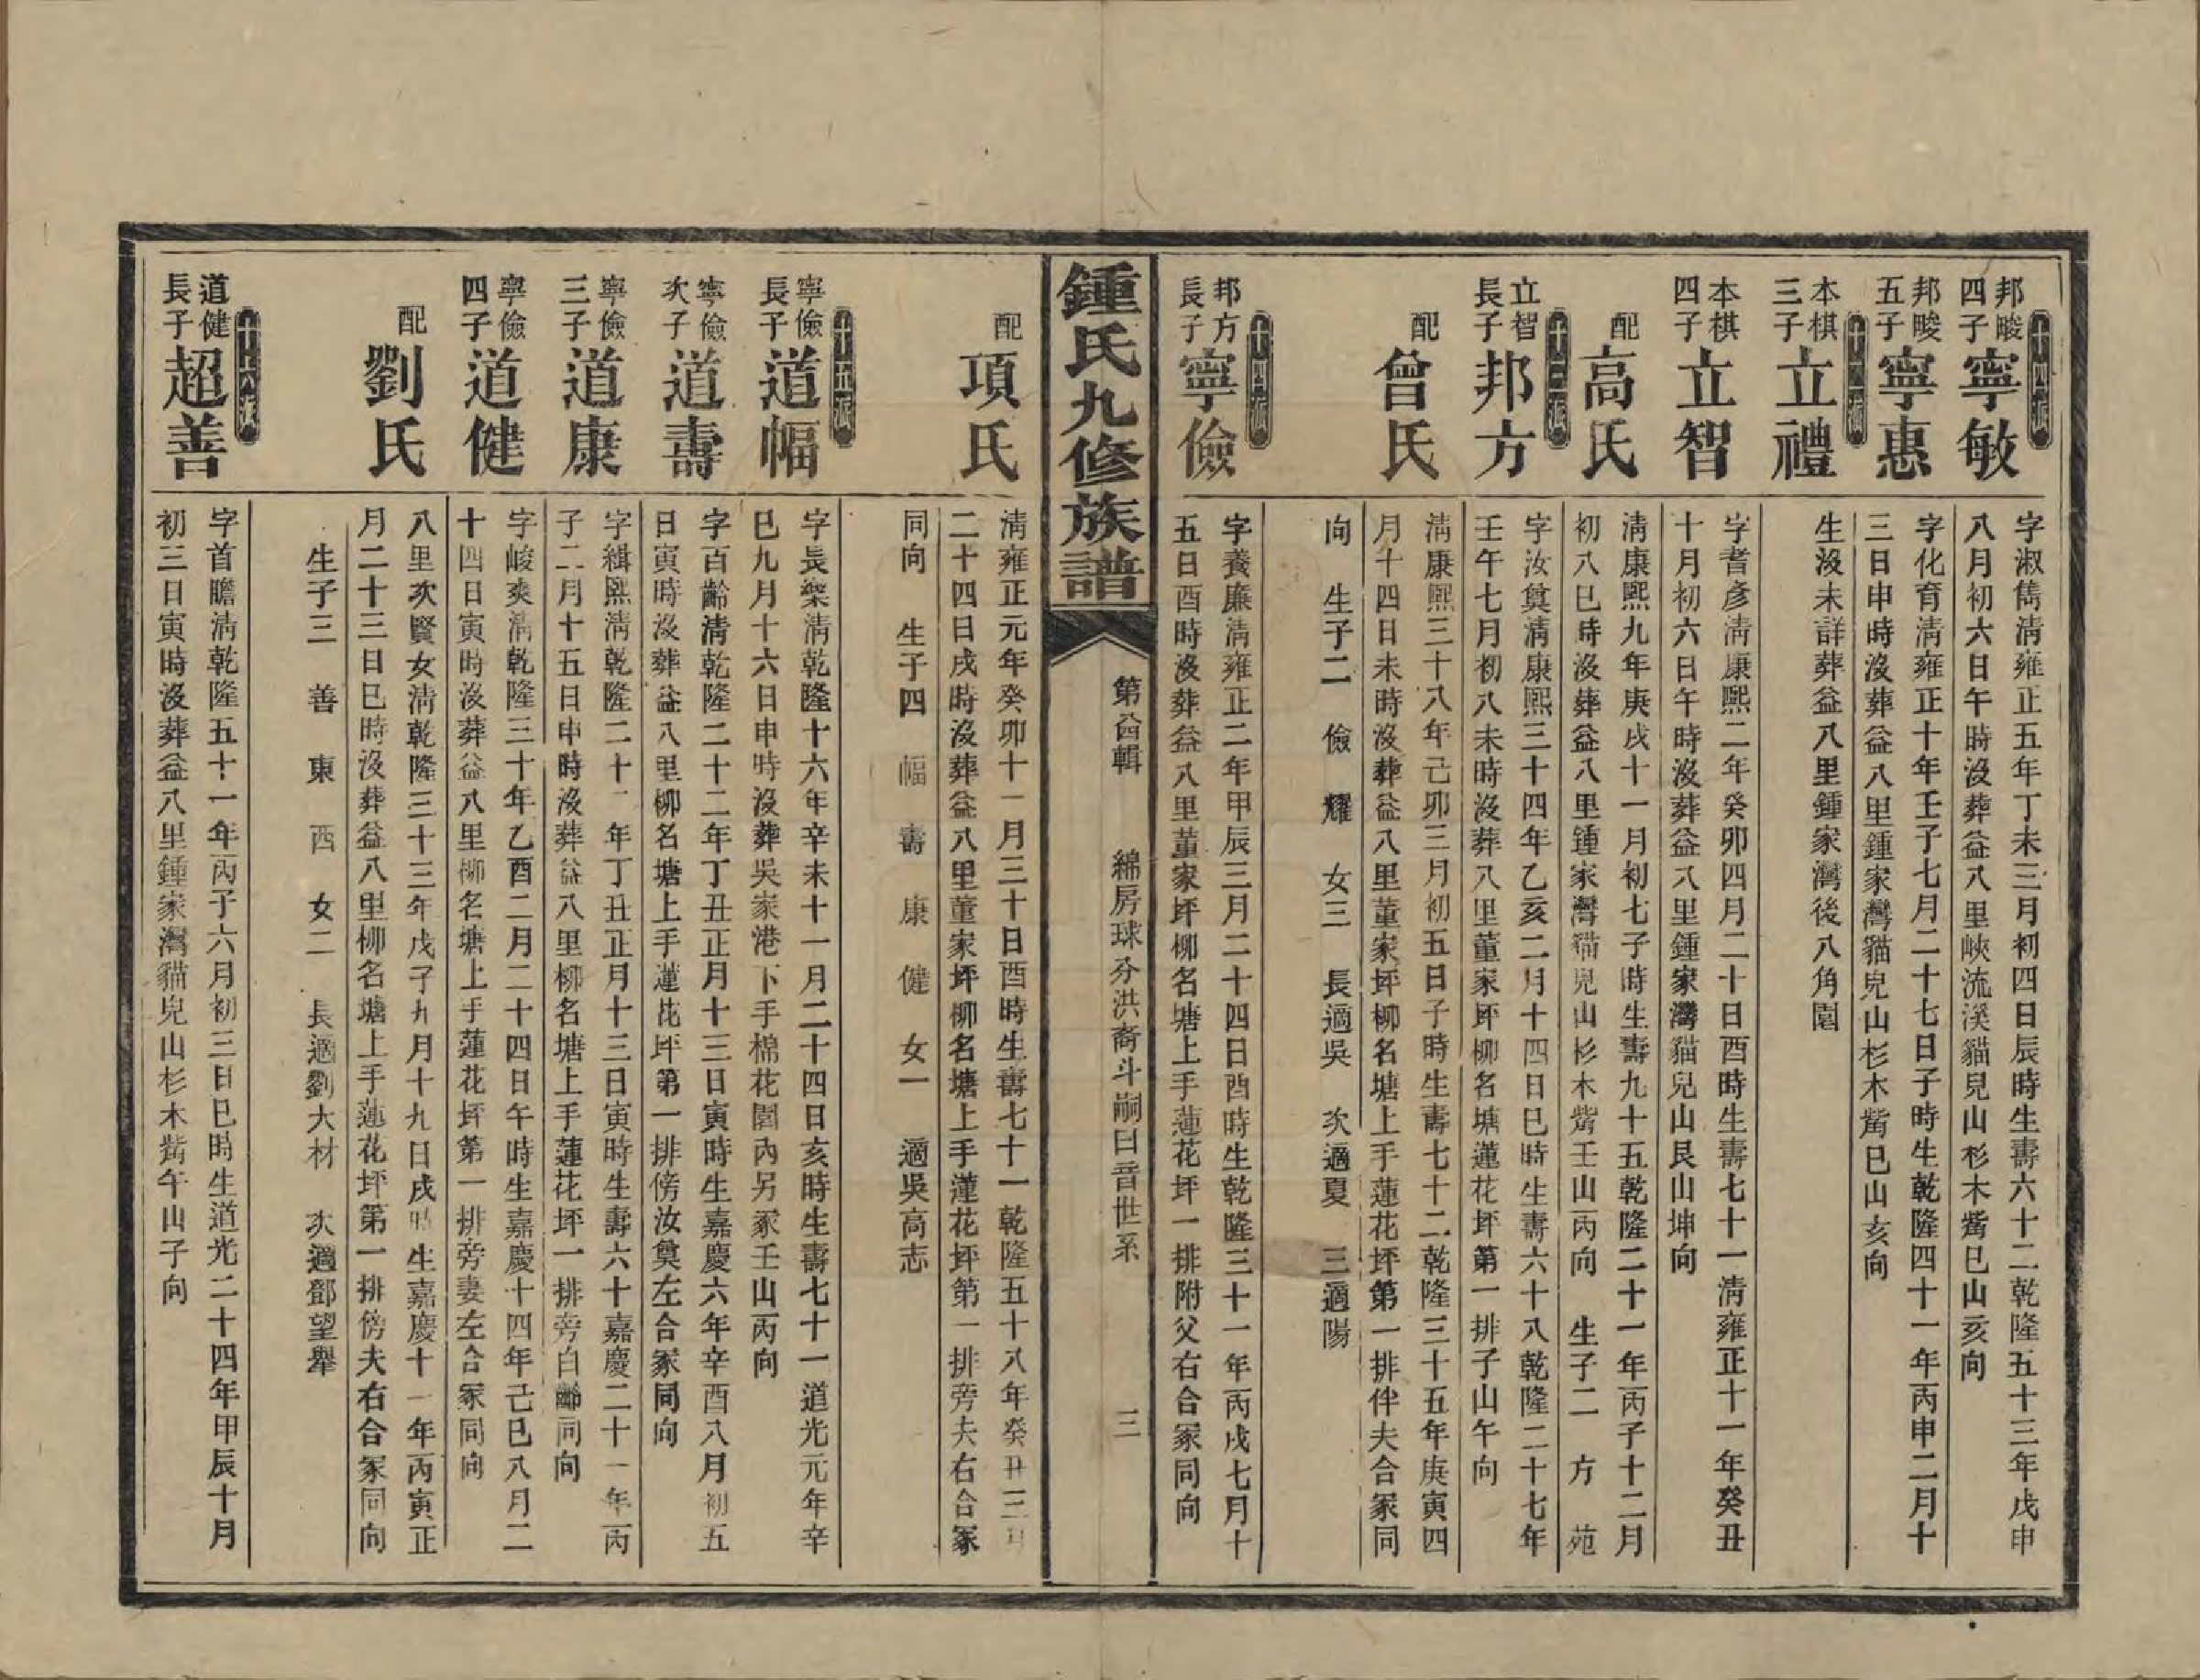 十四派
邦畯四子
寧敏
字淑儁清雍正五年丁未三月初四日辰時生壽六十二乾隆五十三年戊申
八月初六日午時沒葬益八里峽流溪貓兒山杉木嘴巳山亥向
邦畯五子
寧惠
字化育清雍正十年壬子七月二十七日子時生乾隆四十一年丙申二月十
三日申時沒葬益八里鍾家灣貓兒山杉木嘴巳山亥向
十二派
本棋三子
立禮
生沒未詳葬益八里鍾家灣後八角園
本棋四子
立智
字耆彥清康熙二年癸卯四月二十日酉時生壽七十一清雍正十一年癸丑
十月初六日午時沒葬益八里鍾家灣貓兒山艮山坤向
配
高氏
清康熙九年庚戌十一月初七子時生壽九十五乾隆二十一年丙子十二月
初八巳時沒葬益八里鍾家灣猫兒山杉木嘴壬山丙向 生子二 方 苑
十三派
立智長子
邦方
字汝奠清康熙三十四年乙亥二月十四日巳時生壽六十八乾隆二十七年
壬午七月初八未時沒葬八里董家坪柳名塘蓮花坪第一排子山午向
配
曾氏
清康熙三十八年己卯三月初五日子時生壽七十二乾隆三十五年庚寅四
月十四日未時沒葬益八里董家坪柳名塘上手蓮花坪第一排伴夫合冢同
向 生子二 儉 耀 女三 長適吳 次適夏 三適陽
十四派
邦方長子
寧儉
字養廉清雍正二年甲辰三月二十四日酉時生乾隆三十一年丙戌七月十
五日酉時沒葬益八里董家坪柳名塘上手蓮花坪一排附父右合冢同向
鍾氏九修族譜
第卷輯 綿房球分洪裔斗嗣日音世系 三
配
項氏
清雍正元年癸卯十一月三十日酉時生壽七十一乾隆五十八年癸丑三月
二十四日戌時沒葬益八里董家坪柳名塘上手蓮花坪第一排旁夫右合冢
同向 生子四 幅 壽 康 健 女一 適吳高志
十五派
寧儉長子
道幅
字長樂清乾隆十六年辛未十一月二十四日亥時生壽七十一道光元年辛
巳九月十六日申時沒葬吳家港下手棉花園內另冢壬山丙向
寧儉次子
道壽
字百齡清乾隆二十二年丁丑正月十三日寅時生嘉慶六年辛酉八月初五
日寅時沒葬益八里柳名塘上手蓮花坪第一排傍汝奠左合冢同向
寧儉三子
道康
字緝熙清乾隆二十二年丁丑正月十三日寅時生壽六十嘉慶二十一年丙
子二月十五日申時沒葬益八里柳名塘上手蓮花坪一排旁白齡同向
寧儉四子
道健
字峻爽清乾隆三十年乙酉二月二十四日午時生嘉慶十四年己巳八月二
十四日寅時沒葬益八里柳名塘上手蓮花坪第一排旁妻左合冢同向
配
劉氏
八里次賢女清乾隆三十三年戊子九月十九日戌時生嘉慶十一年丙寅正
月二十三日巳時沒葬益八里柳名塘上手蓮花坪第一排傍夫右合冢同向
生子三 善 東 西 女二 長適劉大材 次適鄧望舉
十六派
道健長子
超善
字首瞻清乾隆五十一年丙子六月初三日巳時生道光二十四年甲辰十月
初三日寅時沒葬益八里鍾家灣貓兒山杉木嘴午山子向